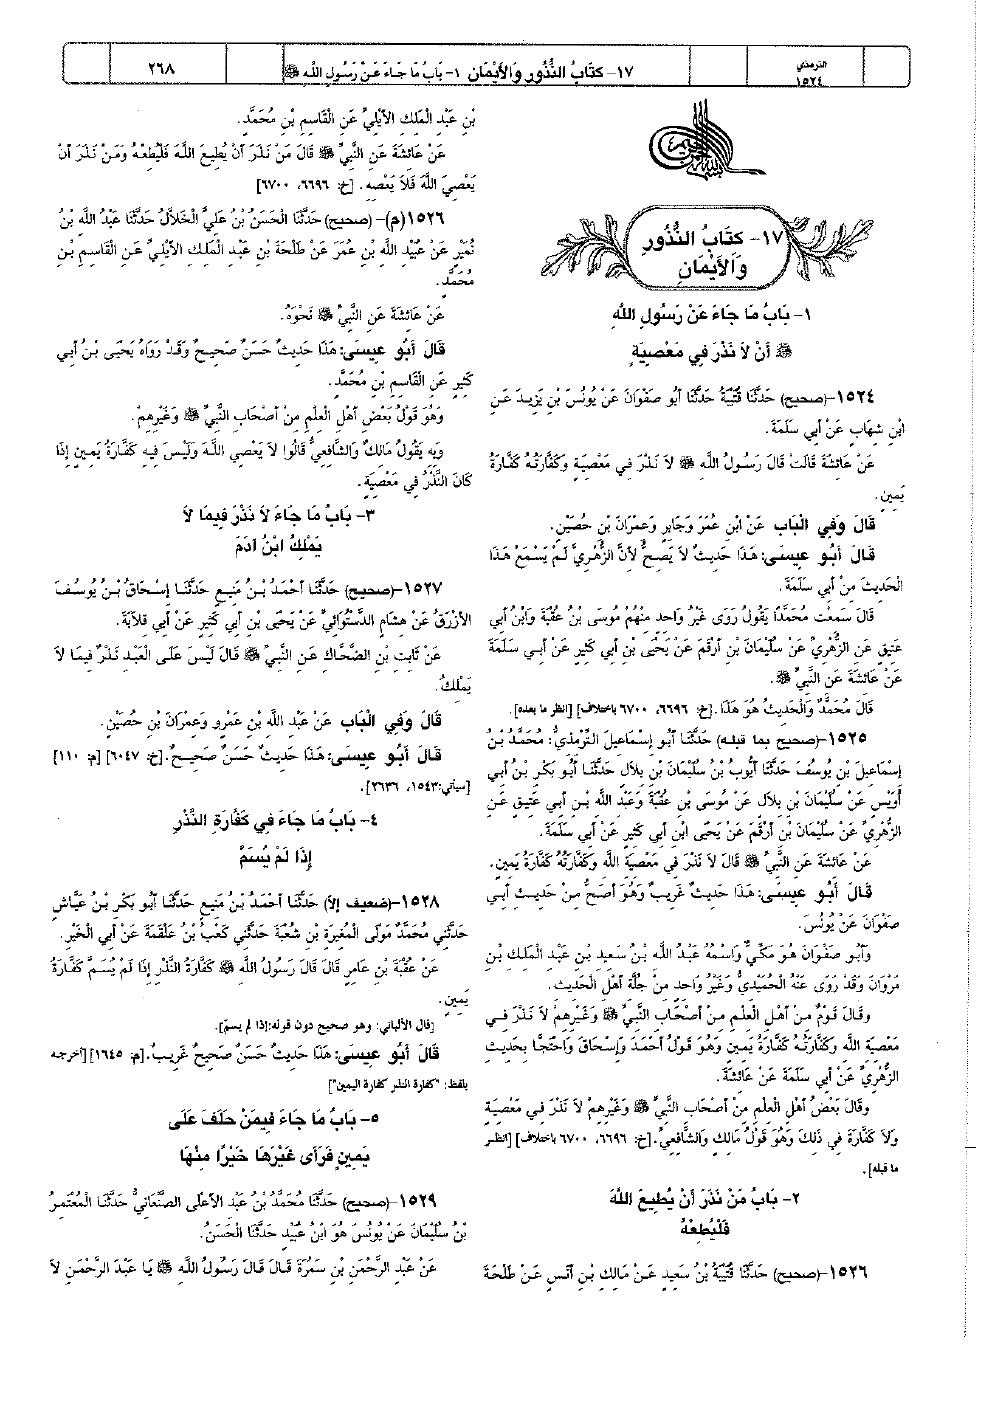 الترمذي
١٥٢٤
١٧- كتَابُ النُّذُورِ وَالأَيْمَان ١- بَابُ مَا جَاءَ عَنْ رَسُولِ اللَّه ﷺ
٢٦٨
١٧- كتَابُ النُّذُورِ
وَالأَيْمَانِ
١- بَابُ مَا جَاءَ عَنْ رَسُولِ اللَّه
ﷺ أنْ لاَ نَذْرَ فِي مَعْصِيَةٍ
١٥٢٤-(صحيح) حَدَّثَنَا قُتَيْبَةُ حَدَّثَنَا أبُو صَفْوَانَ عَنْ يُونُسَ بْنِ يَزِيدَ عَنِ
ابْنِ شِهَابٍ عَنْ أبي سَلَمَةَ.
عَنْ عَائشَةَ قَالَتْ قَالَ رَسُولُ اللَّه ﷺ لاَ نَذْرَ في مَعْصيَةٍ وَكَفَّارَتُهُ كَفَّارَةُ
يَمينٍ.
قَالَ وَفِي الْبَابِ عَنْ ابْنِ عُمَرَ وَجَابِرٍ وَعِمْرَانَ بْنِ حُصَيْنٍ.
قَالَ أبُو عِيسَى: هَذَا حَديثٌ لاَ يَصِحُّ لأَنَّ الزُّهْرِيَّ لَمْ يَسْمَعْ هَذَا
الْحَديثَ منْ أبي سَلَمَةَ.
قَالَ سَمعْتُ مُحَمَّدًا يَقُولُ رَوَى غَيْرُ وَاحد منْهُمْ مُوسَى بْنُ عُقْبَةَ وَابْنُ أبي
عَتيقٍ عَنِ الزُّهْرِيِّ عَنْ سُلَيْمَانَ بْنِ أرْقَمَ عَنْ يَحْيَى بْنِ أبي كَثيرٍ عَنْ أبي سَلَمَةَ
عَنْ عَائشَةَ عَنِ النَّبيِّ ﷺ.
قَالَ مُحَمَّدٌ وَالْحَديثُ هُوَ هَذَا.[خ: ٦٦٩٦، ٦٧٠٠ باختلاف] [انظر ما بعده].
١٥٢٥-(صحيح بما قبله) حَدَّثَنَا أبُو إسْمَاعيلَ التِّرْمذيُّ: مُحَمَّدُ بْنُ
إسْمَاعيلَ بْنِ يُوسُفَ حَدَّثَنَا أيُّوبُ بْنُ سُلَيْمَانَ بْنِ بلاَلٍ حَدَّثَنَا أبُو بَكْرِ بْنُ أبي
أُوَيْسٍ عَنْ سُلَيْمَانَ بْنِ بلاَلٍ عَنْ مُوسَى بْنِ عُقْبَةَ وَعَبْدِ اللَّه بْنِ أبي عَتيقٍ عَنِ
الزُّهْرِيِّ عَنْ سُلَيْمَانَ بْنِ أرْقَمَ عَنْ يَحْيَى ابْنِ أبي كَثيرٍ عَنْ أبي سَلَمَةَ.
عَنْ عَائشَةَ عَنِ النَّبيِّ ﷺ قَالَ لاَ نَذْرَ في مَعْصيَةِ اللَّه وَكَفَّارَتُهُ كَفَّارَةُ يَمينٍ.
قَالَ أبُو عِيسَى: هَذَا حَديثٌ غَريبٌ وَهُوَ أصَحُّ منْ حَديثِ أبي
صَفْوَانَ عَنْ يُونُسَ.
وَأبُو صَفْوَانَ هُوَ مَكِّيٌّ وَاسْمُهُ عَبْدُ اللَّه بْنُ سَعيدِ بْنِ عَبْدِ الْمَلكِ بْنِ
مَرْوَانَ وَقَدْ رَوَى عَنْهُ الْحُمَيْديُّ وَغَيْرُ وَاحد منْ جُلَّةِ أهْلِ الْحَديثِ.
وقَالَ قَوْمٌ منْ أهْلِ الْعلْمِ منْ أصْحَابِ النَّبيِّ ﷺ وَغَيْرِهمْ لاَ نَذْرَ في
مَعْصيَةِ اللَّه وَكَفَّارَتُهُ كَفَّارَةُ يَمينٍ وَهُوَ قَوْلُ أحْمَدَ وَإسْحَاقَ وَاحْتَجَّا بحَديثِ
الزُّهْرِيِّ عَنْ أبي سَلَمَةَ عَنْ عَائشَةَ.
وقَالَ بَعْضُ أهْلِ الْعلْمِ منْ أصْحَابِ النَّبيِّ ﷺ وَغَيْرِهمْ لاَ نَذْرَ في مَعْصيَةٍ
وَلاَ كَفَّارَةَ في ذَلكَ وَهُوَ قَوْلُ مَالكٍ وَالشَّافعيِّ.[خ: ٦٦٩٦، ٦٧٠٠ باختلاف] [انظر
ما قبله].
٢- بَابُ مَنْ نَذَرَ أنْ يُطِيعَ اللَّهَ
فَلْيُطِعْهُ
١٥٢٦-(صحيح) حَدَّثَنَا قُتَيْبَةُ بْنُ سَعيدٍ عَنْ مَالكِ بْنِ أنَسٍ عَنْ طَلْحَةَ
بْنِ عَبْدِ الْمَلكِ الأَيْليِّ عَنِ الْقَاسمِ بْنِ مُحَمَّدٍ.
عَنْ عَائشَةَ عَنِ النَّبيِّ ﷺ قَالَ مَنْ نَذَرَ أنْ يُطيعَ اللَّهَ فَلْيُطعْهُ وَمَنْ نَذَرَ أنْ
يَعْصيَ اللَّهَ فَلاَ يَعْصه. [خ: ٦٦٩٦، ٦٧٠٠]
١٥٢٦(م)- (صحيح) حَدَّثَنَا الْحَسَنُ بْنُ عَليٍّ الْخَلاَّلُ حَدَّثَنَا عَبْدُ اللَّه بْنُ
نُمَيْرٍ عَنْ عُبَيْدِ اللَّه بْنِ عُمَرَ عَنْ طَلْحَةَ بْنِ عَبْدِ الْمَلكِ الأَيْليِّ عَنِ الْقَاسمِ بْنِ
مُحَمَّدٍ.
عَنْ عَائشَةَ عَنِ النَّبيِّ ﷺ نَحْوَهُ.
قَالَ أبُو عِيسَى: هَذَا حَديثٌ حَسَنٌ صَحيحٌ وَقَدْ رَوَاهُ يَحْيَى بْنُ أبي
كَثيرٍ عَنِ الْقَاسمِ بْنِ مُحَمَّدٍ.
وَهُوَ قَوْلُ بَعْضِ أهْلِ الْعلْمِ منْ أصْحَابِ النَّبيِّ ﷺ وَغَيْرِهمْ.
وَبه يَقُولُ مَالكٌ وَالشَّافعيُّ قَالُوا لاَ يَعْصي اللَّهَ وَلَيْسَ فيه كَفَّارَةُ يَمينٍ إذَا
كَانَ النَّذْرُ في مَعْصيَةٍ.
٣- بَابُ مَا جَاءَ لاَ نَذْرَ فِيمَا لاَ
يَمْلِكُ ابْنُ آدَمَ
١٥٢٧-(صحيح) حَدَّثَنَا أحْمَدُ بْنُ مَنيعٍ حَدَّثَنَا إسْحَاقُ بْنُ يُوسُفَ
الأزْرَقُ عَنْ هشَامٍ الدَّسْتُوَائيِّ عَنْ يَحْيَى بْنِ أبي كَثيرٍ عَنْ أبي قلاَبَةَ.
عَنْ ثَابتِ بْنِ الضَّحَّاكِ عَنِ النَّبيِّ ﷺ قَالَ لَيْسَ عَلَى الْعَبْدِ نَذْرٌ فيمَا لاَ
يَمْلكُ.
قَالَ وَفِي الْبَابِ عَنْ عَبْدِ اللَّه بْنِ عَمْرٍو وَعمْرَانَ بْنِ حُصَيْنٍ.
قَالَ أبُو عِيسَى: هَذَا حَديثٌ حَسَنٌ صَحيحٌ.[خ: ٦٠٤٧] [م: ١١٠]
[سيأتي:١٥٤٣، ٢٦٣٦].
٤- بَابُ مَا جَاءَ فِي كَفَّارَةِ النَّذْرِ
إِذَا لَمْ يُسَمَّ
١٥٢٨-(ضعيف إلاّ) حَدَّثَنَا أحْمَدُ بْنُ مَنيعٍ حَدَّثَنَا أبُو بَكْرِ بْنُ عَيَّاشٍ
حَدَّثَني مُحَمَّدٌ مَوْلَى الْمُغيرَةِ بْنِ شُعْبَةَ حَدَّثَني كَعْبُ بْنُ عَلْقَمَةَ عَنْ أبي الْخَيْرِ.
عَنْ عُقْبَةَ بْنِ عَامرٍ قَالَ قَالَ رَسُولُ اللَّه ﷺ كَفَّارَةُ النَّذْرِ إذَا لَمْ يُسَمَّ كَفَّارَةُ
يَمينٍ.
[قال الألباني: وهو صحيح دون قوله:إذا لم يسمّ].
قَالَ أبُو عِيسَى: هَذَا حَديثٌ حَسَنٌ صَحيحٌ غَريبٌ.[م: ١٦٤٥] [أخرجه
بلفظ: "كفارة النذر كفارة اليمين"]
٥- بَابُ مَا جَاءَ فِيمَنْ حَلَفَ عَلَى
يَمِينٍ فَرَأى غَيْرَهَا خَيْرًا مِنْهَا
١٥٢٩-(صحيح) حَدَّثَنَا مُحَمَّدُ بْنُ عَبْدِ الأعْلَى الصَّنْعَانيُّ حَدَّثَنَا الْمُعْتَمرُ
بْنُ سُلَيْمَانَ عَنْ يُونُسَ هُوَ ابْنُ عُبَيْدٍ حَدَّثَنَا الْحَسَنُ.
عَنْ عَبْدِ الرَّحْمَنِ بْنِ سَمُرَةَ قَالَ قَالَ رَسُولُ اللَّه ﷺ يَا عَبْدَ الرَّحْمَنِ لاَ